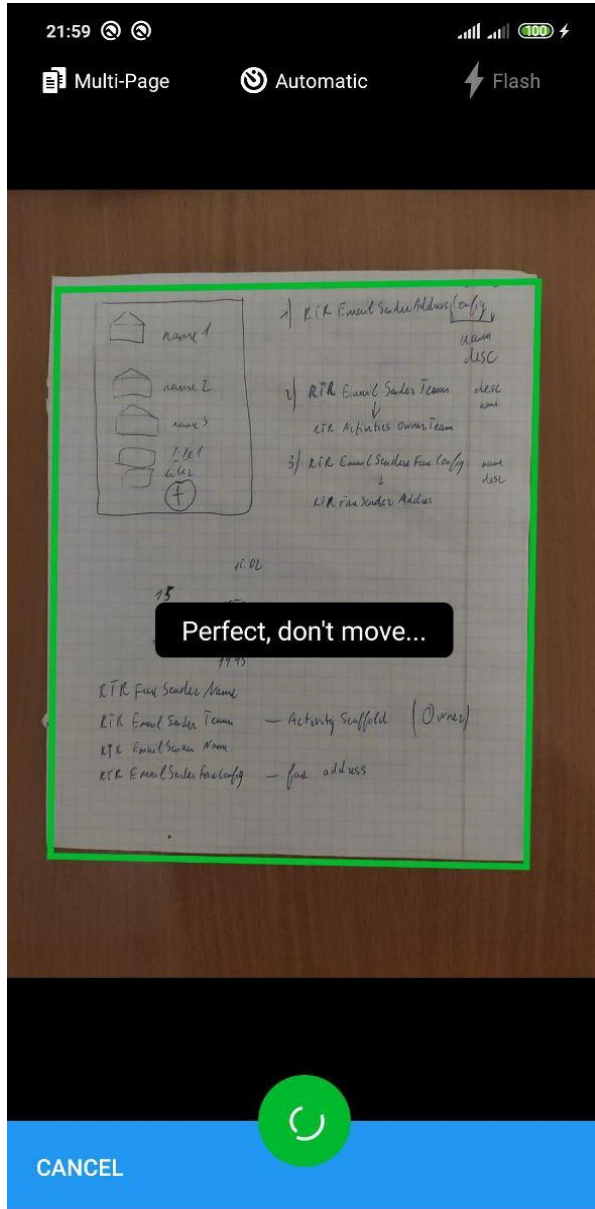 21:59 100
Multi-Page Automatic Flash
1) RTR Email Sender Address Config
name
desc
name 1
name 2
name 3
2) RTR Email Sender Team desc
name
RTR Activities Owner Team
3) RTR Email Sender Fax Config name
desc
RTR Fax Sender Address
title 1
title 2
+
15
Perfect, don't move...
19.45
RTR Fax Sender Name
RTR Email Sender Team — Activity Scaffold (Owner)
RTR Email Sender Name.
RTR Email Sender Fax Config — fax address
CANCEL